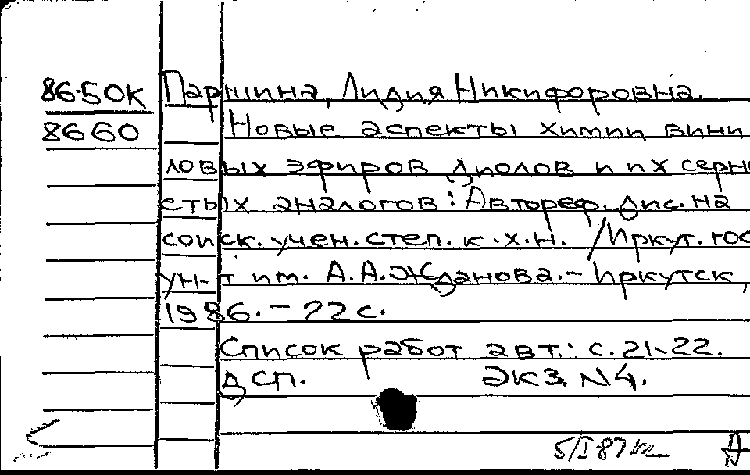 86-50К Паршина, Лидия Никифоровна.
8660 Новые аспекты химии вини
ловых эфиров диолов и их серни
стых аналогов: Автореф. дис. на
соиск. учен. степ. к.х.н. /Иркут. гос
ун-т им. А.А.Жданова.- Иркутск,
1986.-22с.
Список работ авт.: с.21-22.
ДСП. Экз. N4.
5/I-87